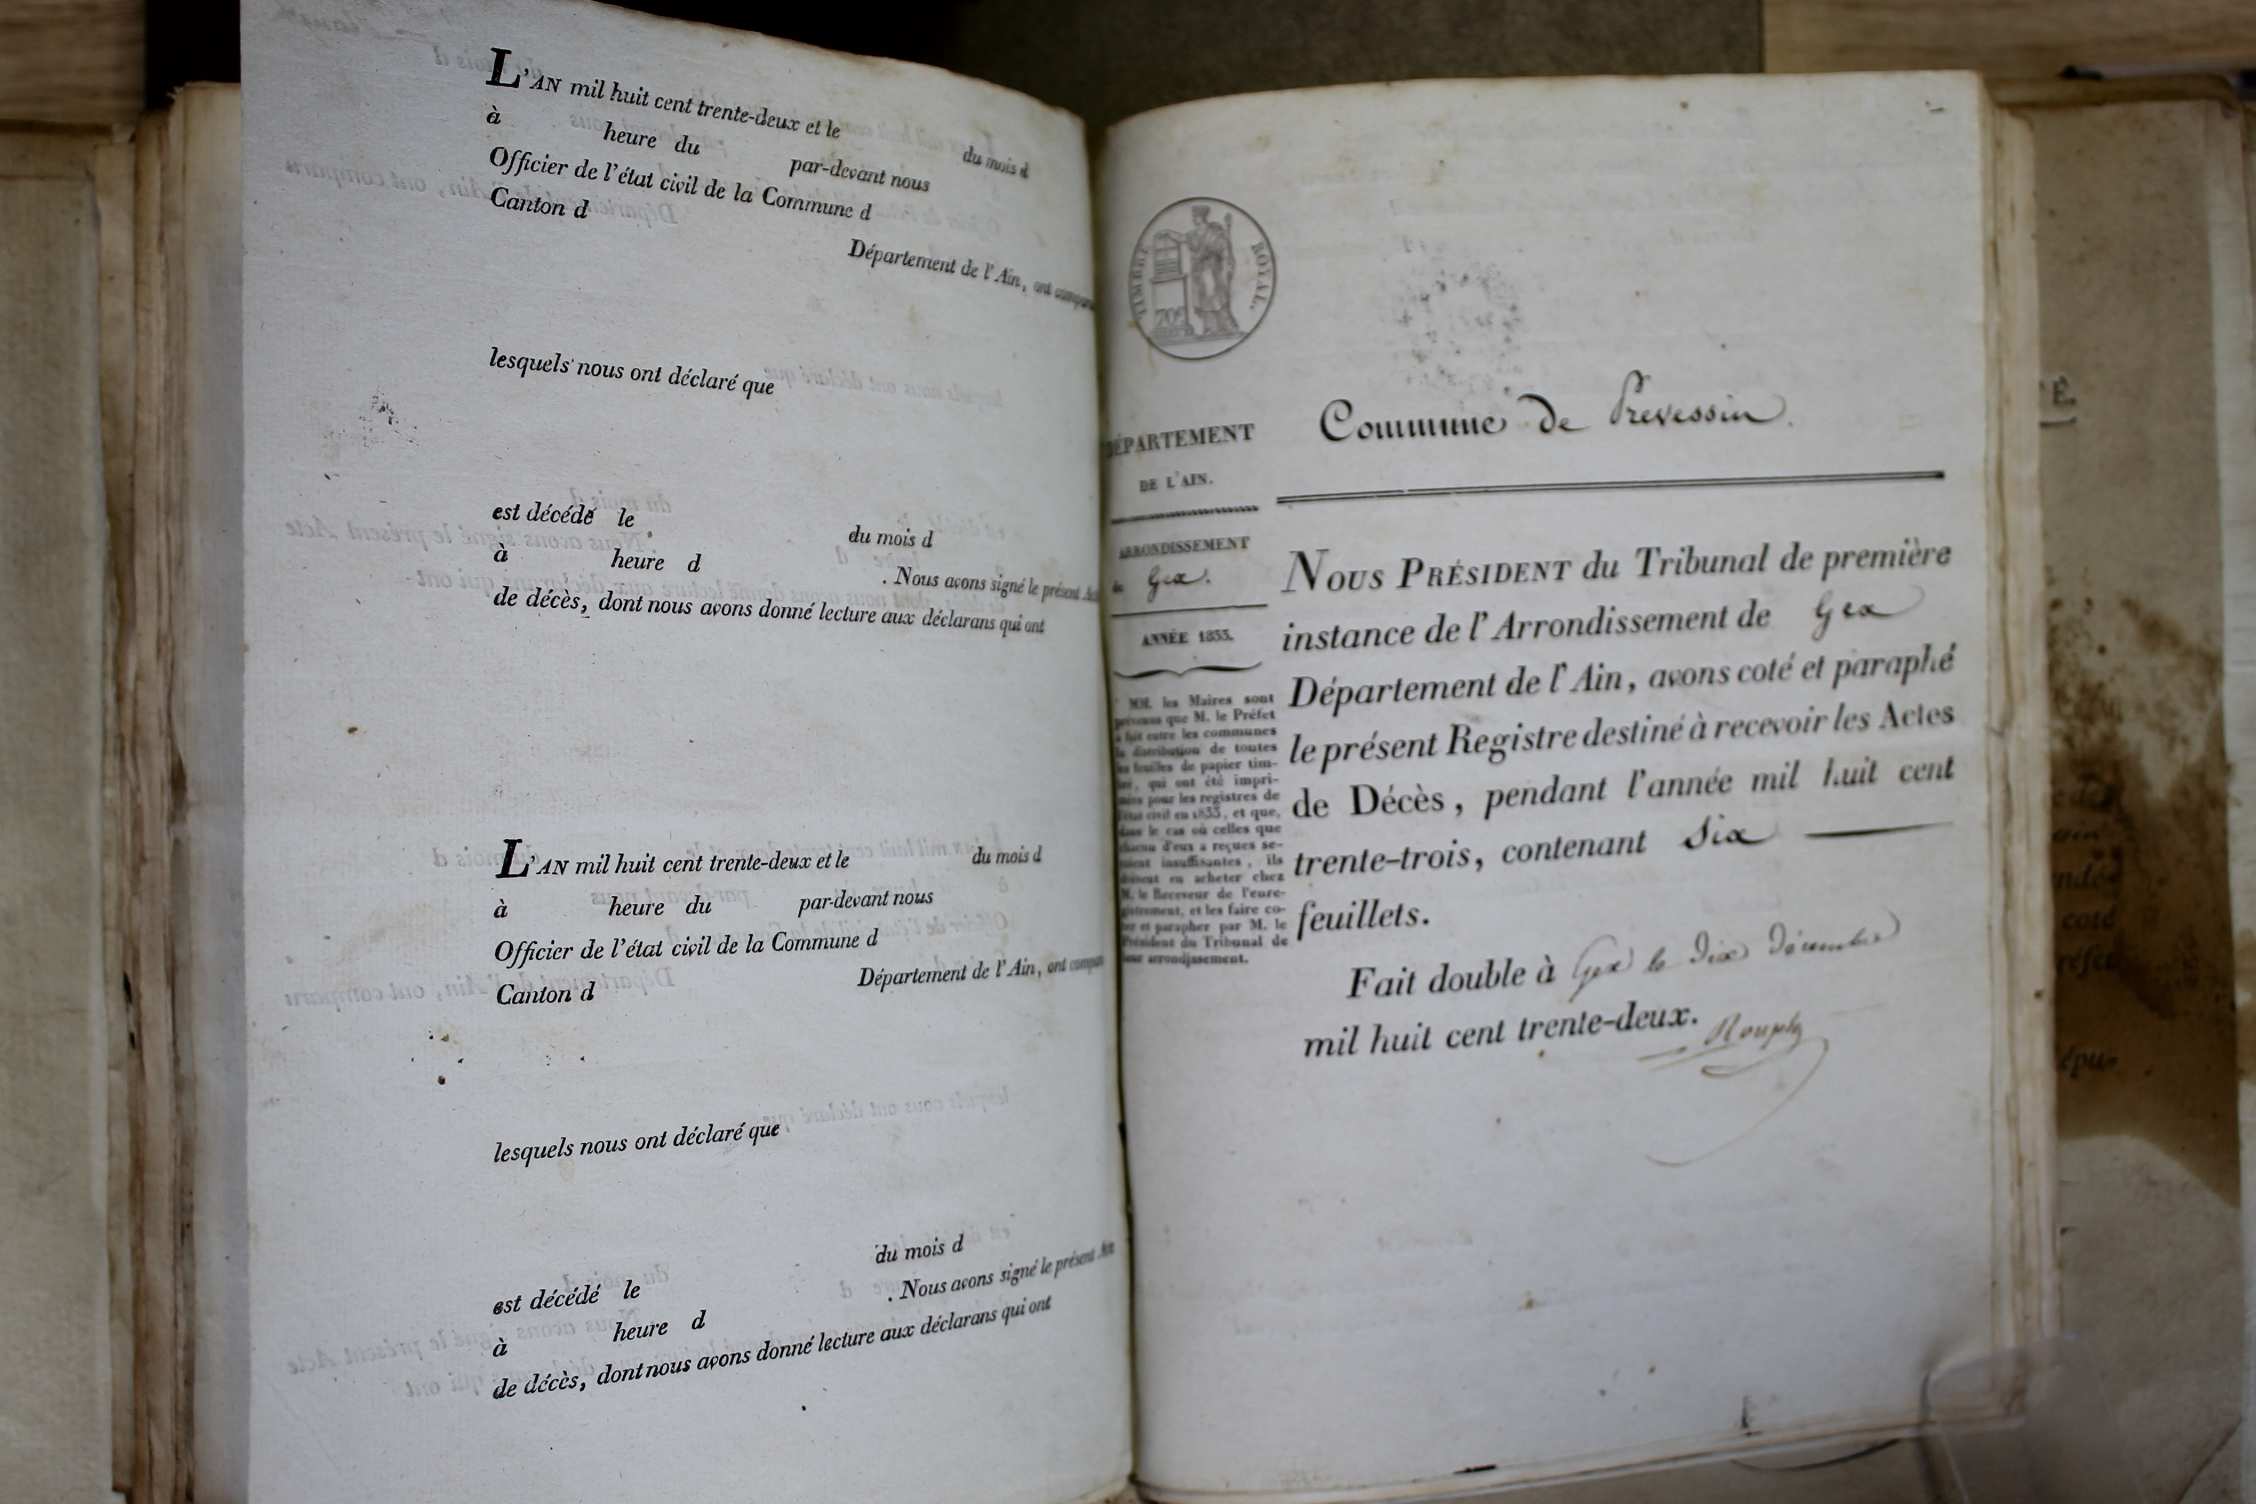 L'AN mil huit cent trente-deux et le du mois d
à heure du par-devant nous
Officier de l'état civil de la Commune d
Canton d Département de l'Ain, ont comparu
lesquels nous ont déclaré que
est décédé le du mois d
à heure d . Nous avons signé le présent Acte
de décès, dont nous avons donné lecture aux déclarans qui ont
L'AN mil huit cent trente-deux et le du mois d
à heure du par-devant nous
Officier de l'état civil de la Commune d
Canton d Département de l'Ain, ont comparu
lesquels nous ont déclaré que
est décédé le du mois d
à heure d . Nous avons signé le présent Acte
de décès, dont nous avons donné lecture aux déclarans qui ont
TIMBRE ROYAL.
DÉPARTEMENT
DE L'AIN.
ARRONDISSEMENT
de Gex.
ANNÉE 1833.
MM. les Maires sont
prévenus que M. le Préfet
a fait entre les communes
la distribution de toutes
les feuilles de papier tim-
bré, qui ont été impri-
mées pour les registres de
l'état civil en 1833, et que,
dans le cas où celles que
chacun d'eux a reçues se-
roient insuffisantes, ils
doivent en acheter chez
M. le Receveur de l'enre-
gistrement, et les faire co-
ter et parapher par M. le
Président du Tribunal de
leur arrondissement.
Commune de Prevessin.
NOUS PRÉSIDENT du Tribunal de première
instance de l'Arrondissement de Gex
Département de l'Ain, avons coté et paraphé
le présent Registre destiné à recevoir les Actes
de Décès, pendant l'année mil huit cent
trente-trois, contenant Six
feuillets.
Fait double à Gex le dix décembre
mil huit cent trente-deux.